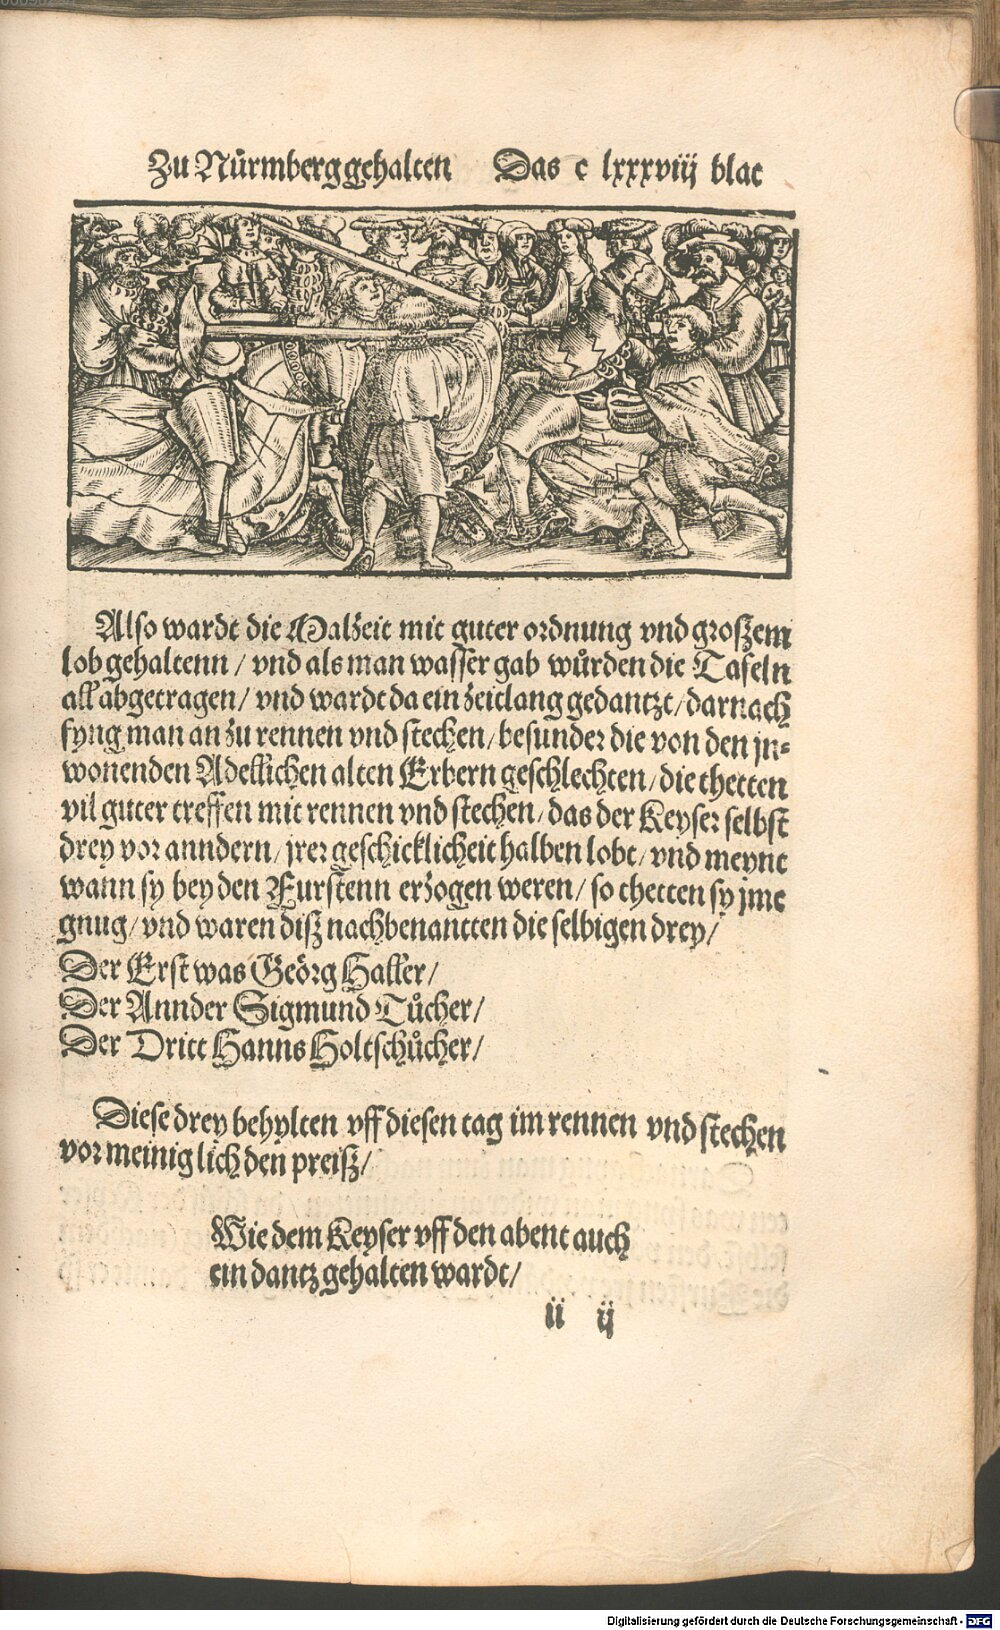 Zu Nůrmberg gehalten Das c lxxxviij blat
Also wardt die Malzeit mit guter ordnung vnd groszem
lob gehaltenn / vnd als man wasser gab wůrden die Tafeln
all abgetragen / vnd wardt da ein zeitlang gedantzt / darnach
fyng man an zu rennen vnd stechen / besunder die von den jn-
wonenden Adellichen alten Erbern geschlechten / die thetten
vil guter treffen mit rennen vnd stechen / das der Keyser selbst
drey vor anndern / jrer geschicklicheit halben lobt / vnd meynt
wann sy bey den Furstenn erzogen weren / so thetten sy jme
gnug / vnd waren disz nachbenantten die selbigen drey /
Der Erst was Geörg Haller /
Der Annder Sigmund Tůcher /
Der Dritt Hanns Holtschůcher /
Diese drey behylten vff diesen tag im rennen vnd stechen
vor meiniglich den preisz /
Wie dem Keyser vff den abent auch
ein dantz gehalten wardt /
ii ij
Digitalisierung gefördert durch die Deutsche Forschungsgemeinschaft - DFG